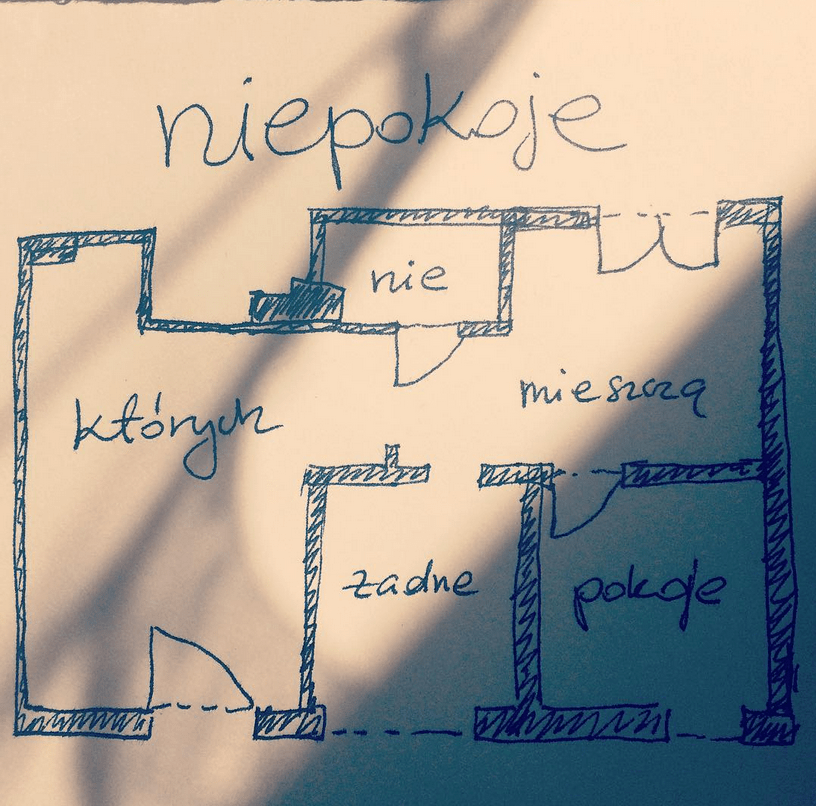 niepokoje
których
nie
mieszczą
żadne
pokoje